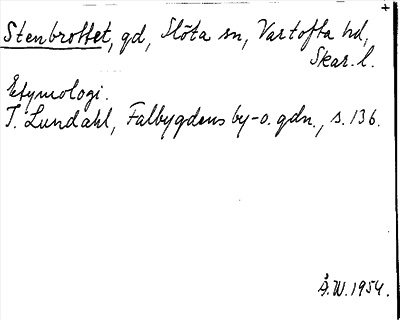 +
Stenbrottet, gd, Slöta sn, Vartofta hd,
Skar. l.
Etymologi.
I. Lundahl, Falbygdens by-o. gdn., s. 136.
Å.W. 1954.